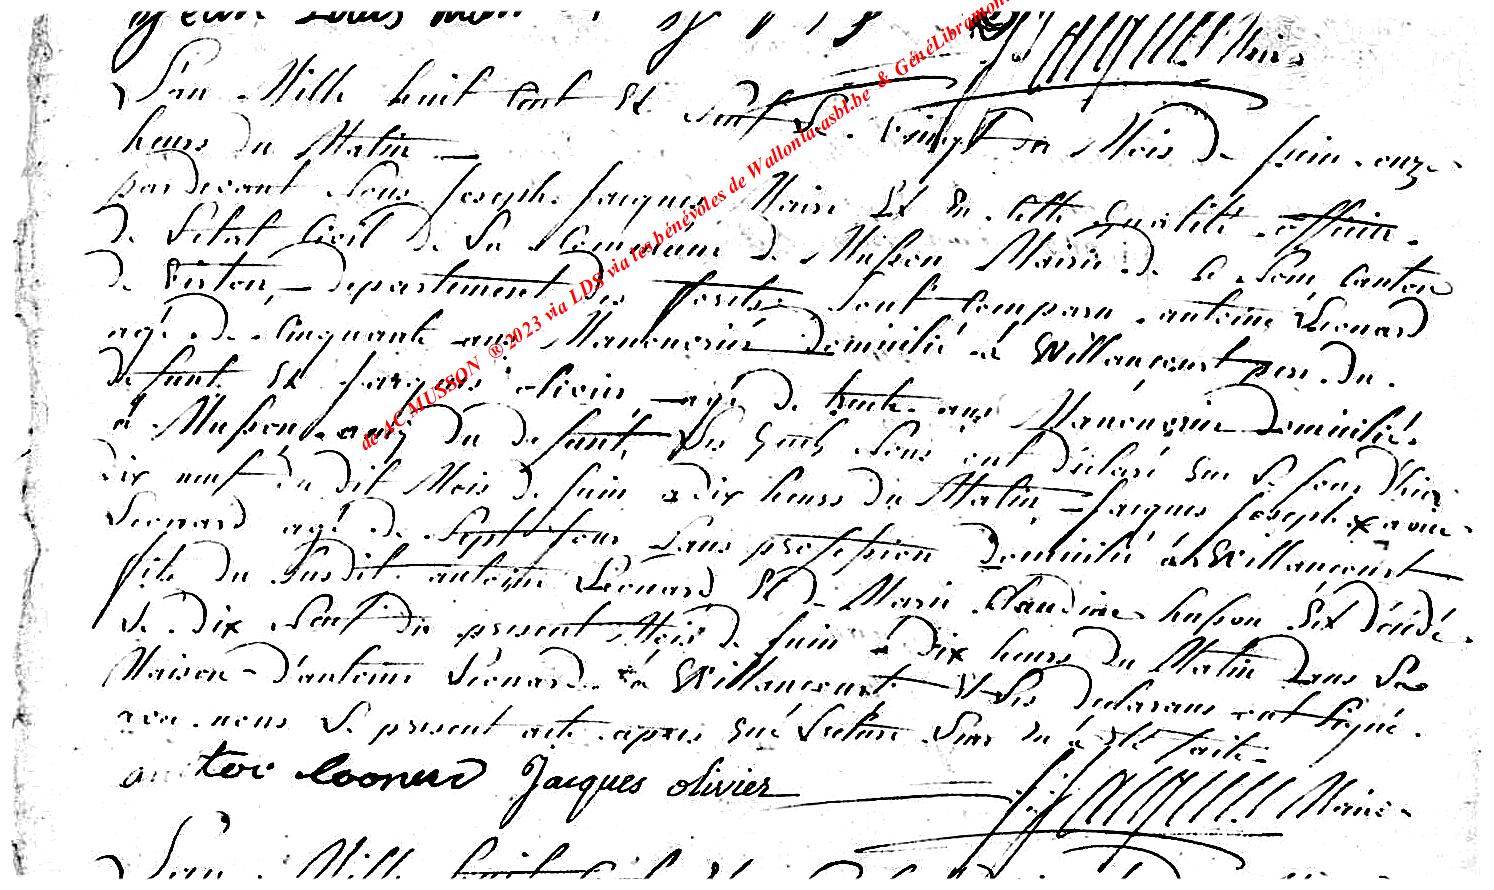 Jean Louis
J J JACQUES Maire
L'an Mille huit Cent Et Sept Le vingt du Mois De juin onze
heures du Matin —
pardevant Nous Joseph Jacques Maire Et En Cette qualité officier
De L'état Civil De La Commune De Musson Mairie De Ce Nom Canton
De Virton, departement des forets Sont Comparu antoine Leonard
agé De Cinquante ans Manouvrier Domicilié à Willancourt pere du
defunt Et Jacques olivier agé De trente ans Manouvrier Domicilié
à Musson amy du defunt, Les quels Nous ont Déclaré que Le jour D'hier
dix neuf du dit Mois De juin a dix heures du Matin, Jacques Joseph xavier
Leonard agé De Sept Sans profession Domicilié à Willancourt
fils du Susdit antoine Leonard Et De Marie Claudine husson Est Décédé
Le Dix Neuf du present Mois De juin à Dix heures Du Matin Dans La
Maison D'antoine Leonard à Willancourt Et Les declarans ont Signé
avec nous Le present acte apres que Lecture Leur En à Eté faite
Jacques olivier
J J JACQUES Maire
L'an Mille huit
de AC MUSSON ® 2023 via LDS via les bénévoles de Wallonia-asbl.be & GénéLibramont